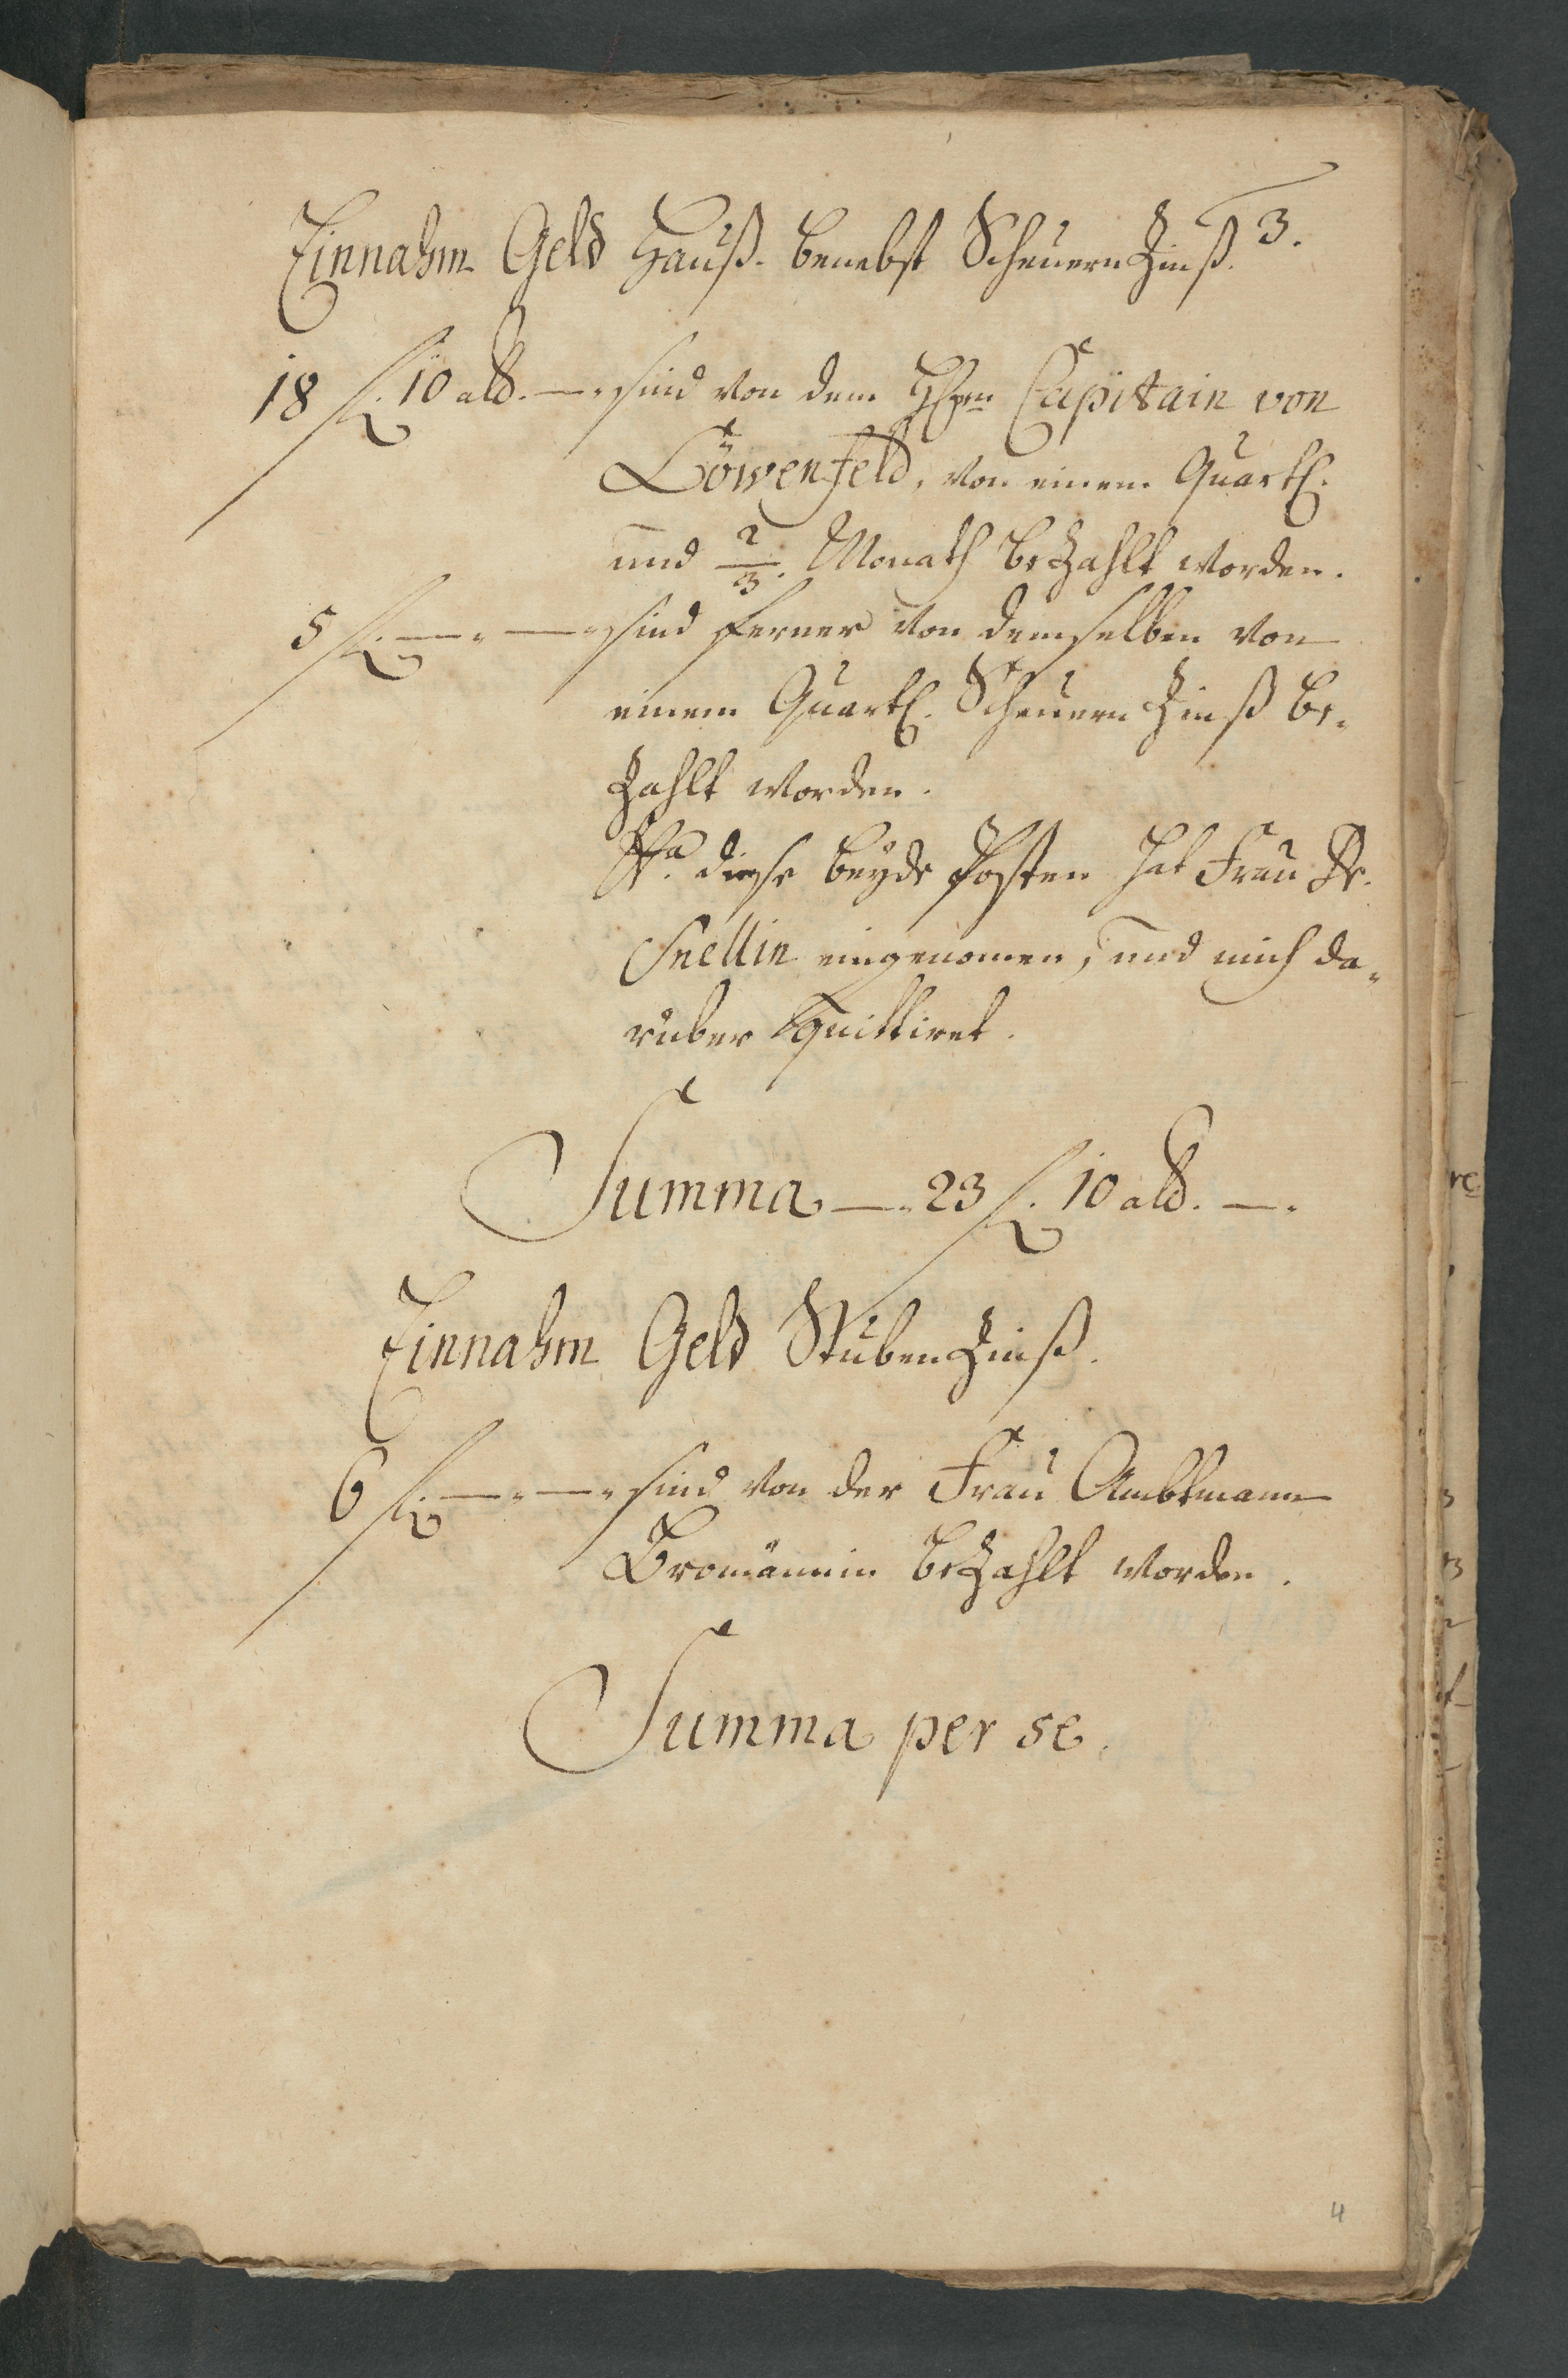 3.
Einnahm Geld Hauß- benebst Scheuern Zinß.
18 f. 10 alb. — . sind von dem Hhrn Capitain von
Löwenfeld, von einem Quartl.
und 2/3. Monath bezahlt worden.
5 f. — . — . sind ferner von demselben von
einem Quartl. Scheuern Zinß be-
zahlt worden.
diese beyde Posten hat Frau
Snellin eingenomen, und mich da-
rüber quittiret.
Summa — . 23 f. 10 alb. — .
Einnahm Geld Stuben Zinß.
6 f. — . — . sind von der Frau Ambtmann
Bromännin bezahlt worden.
Summa per se.
4